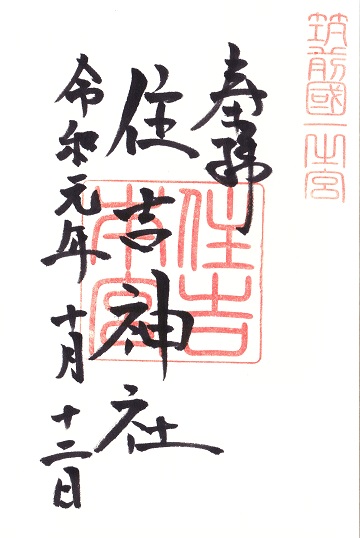 筑前國一之宮
奉拝
住吉本宮
住吉神社
令和元年十月十二日